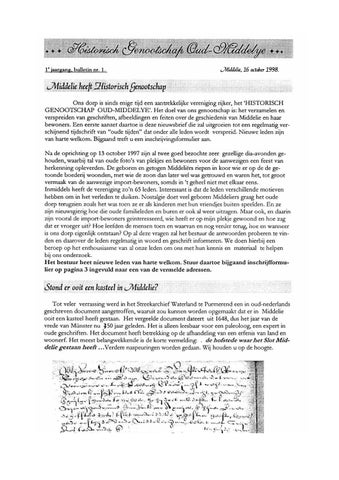 ... Historisch Genootschap Oud-Middelye ...
1e jaargang, bulletin nr. 1.
Middelie, 16 october 1998.
Middelie heeft Historisch Genootschap
Ons dorp is sinds enige tijd een aantrekkelijk vereniging rijker, het 'HISTORISCH
GENOOTSCHAP OUD-MIDDELYE'. Het doel van ons genootschap is: het verzamelen en
verspreiden van geschriften, afbeeldingen en foten over de geschiedenis van Middelie en haar
bewoners. Een eerste aanzet daartoe is deze nieuwsbrief die zal uitgroeien tot een regelmatig ver-
schijnend tijdschrift van "oude tijden" dat onder alle leden wordt verspreid. Nieuwe leden zijn
van harte welkom. Bijgaand treft u een inschrijvingsformulier aan.
Na de oprichting op 13 october 1997 zijn al twee goed bezochte zeer gezellige dia-avonden ge-
houden, waarbij tal van oude foto's van plekjes en bewoners voor de aanwezigen een feest van
herkenning opleverden. De geboren en getogen Middeliërs riepen in koor wie er op de de ge-
toonde boerderij woonden, met wie de zoon dan later wel was getrouwd en waren het, tot groot
vermaak van de aanwezige import-bewoners, soms in 't geheel niet met elkaar eens.
Inmiddels heeft de vereniging zo'n 65 leden. Interessant is dat de leden verschillende motieven
hebben om in het verleden te duiken. Nostalgie doet veel geboren Middeliers graag het oude
dorp terugzien zoals het was toen ze er als kinderen met hun vriendjes buiten speelden. En ze
zijn nieuwsgierig hoe die oude familieleden en buren er ook al weer uitzagen. Maar ook, en daarin
zijn vooral de import-bewoners geinteresseerd, heeft u en uw huis een geschiedenis en hoe zag
dat er vroeger uit? Hoe leefden de mensen toen en waarvan en nog verder terug, hoe en wanneer
is ons dorp eigenlijk ontstaan? Op al deze vragen zal het bestuur de antwoorden proberen te vin-
den en daarover de leden regelmatig in woord en geschrift informeren. We doen hierbij een
beroep op het enthousiasme van al onze leden om ons met hun kennis en materiaal te helpen
bij ons onderzoek.
Het bestuur heet nieuwe leden van harte welkom. Stuur daartoe bijgaand inschrijfformu-
lier op pagina 3 ingevuld naar een van de vermelde adressen.
Stond er ooit een kasteel in Middelie?
Tot veler verrassing werd in het Streekarchief Waterland te Purmerend een in oud-nederlands
geschreven document aangetroffen, waaruit zou kunnen worden opgemaakt dat er in Middelie
ooit een kasteel heeft gestaan. Het vergeelde document dateert uit 1648, dus het jaar van de
vrede van Münster nu 350 jaar geleden. Het is alleen leesbaar voor een paleoloog, een expert in
oude geschriften. Het document heeft betrekking op de afhandeling van een erfenis van land en
woonerf. Het meest belangwekkende is de korte vermelding . de hofstede waar het Slot Mid-
delie gestaan heeft ...Verdere naspeuringen worden gedaan. Wij houden u op de hoogte.